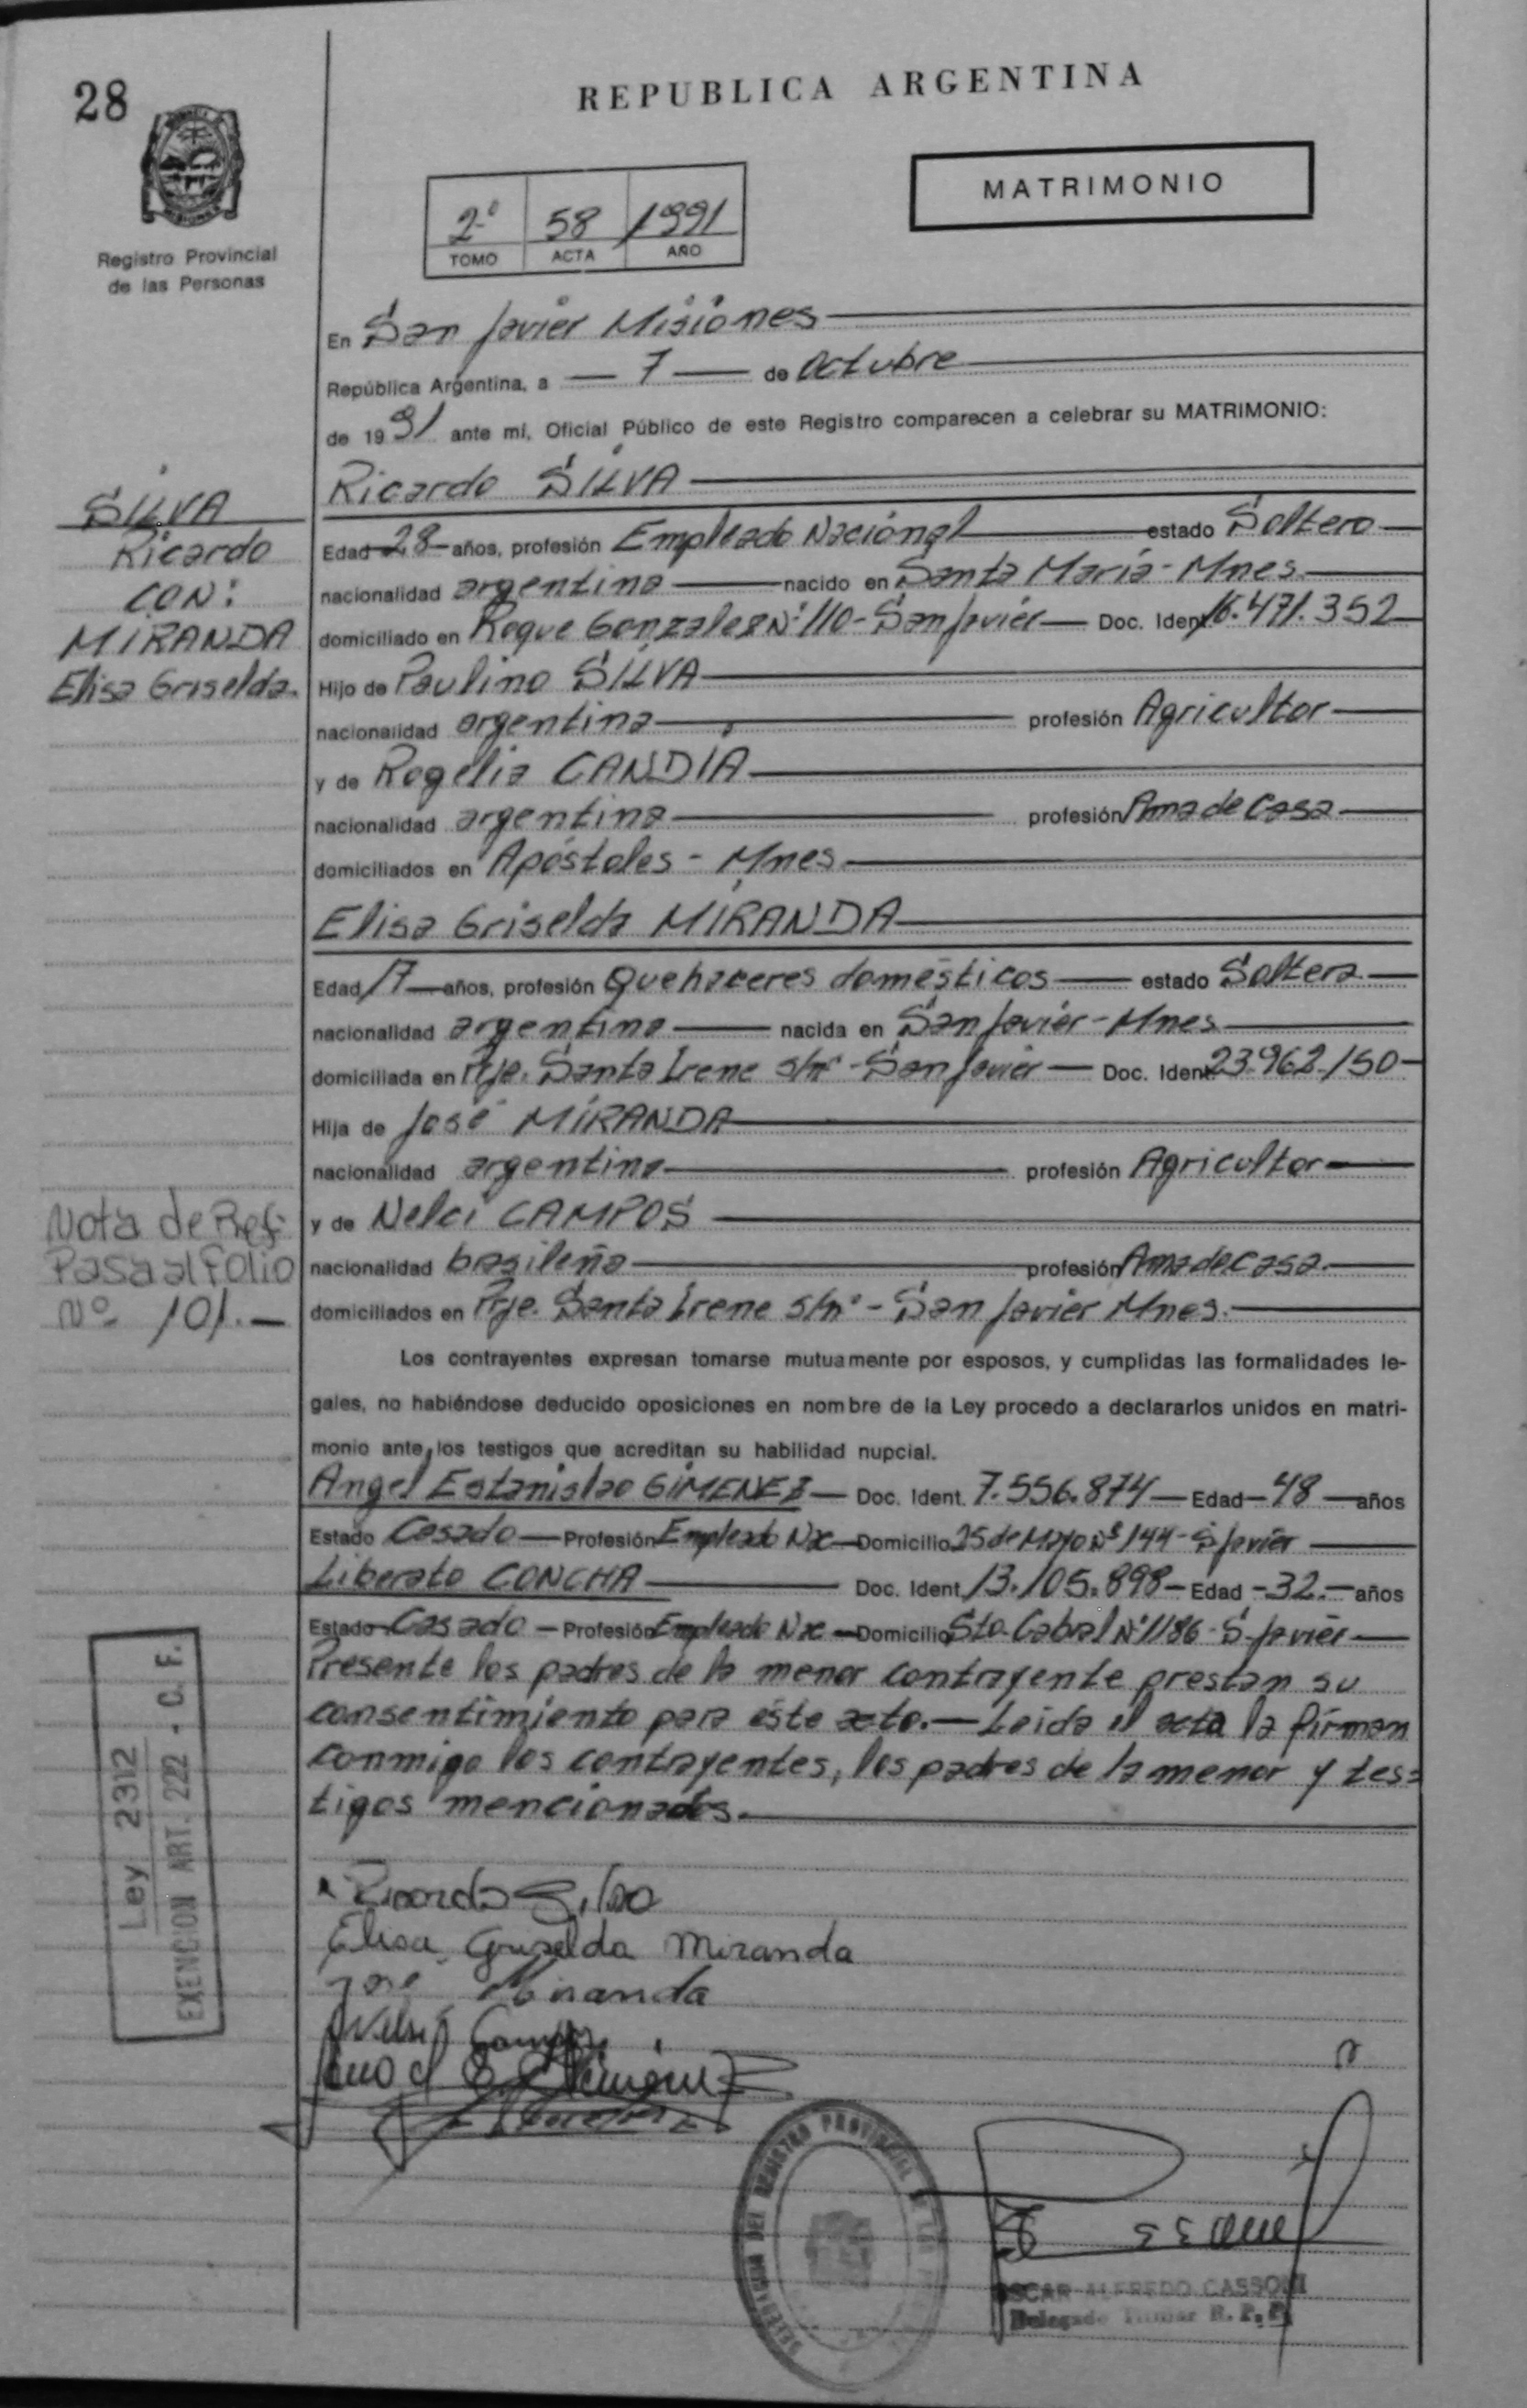 28
REPUBLICA ARGENTINA
MATRIMONIO
2º 58 1991
TOMO ACTA AÑO
Registro Provincial
de las Personas
En San Javier Misiones
República Argentina, a 7 de Octubre
de 1991 ante mí, Oficial Público de este Registro comparecen a celebrar su MATRIMONIO:
Ricardo SILVA
SILVA
Ricardo
CON:
MIRANDA
Elisa Griselda.
Edad 28 años, profesión Empleado Nacional estado Soltero
nacionalidad argentina nacido en Santa María - Mnes.
domiciliado en Roque Gonzalez Nº 110 - San Javier Doc. Ident. 16.471.352
Hijo de Paulino SILVA
nacionalidad argentina profesión Agricultor
y de Rogelia CANDIA
nacionalidad argentina profesión Ama de Casa
domiciliados en Apóstoles - Mnes.
Elisa Griselda MIRANDA
Edad 17 años, profesión Quehaceres domésticos estado Soltera
nacionalidad argentina nacida en San Javier - Mnes
domiciliada en Pje. Santa Irene s/nº - San Javier Doc. Ident. 23.962.150
Hija de José MIRANDA
nacionalidad argentina profesión Agricultor
y de Nelci CAMPOS
nacionalidad brasileña profesión Ama de Casa.
domiciliados en Pje. Santa Irene s/nº - San Javier Mnes.
Nota de Ref:
Pasa al Folio
Nº 101.-
Los contrayentes expresan tomarse mutuamente por esposos, y cumplidas las formalidades le-
gales, no habiéndose deducido oposiciones en nombre de la Ley procedo a declararlos unidos en matri-
monio ante los testigos que acreditan su habilidad nupcial.
Angel Estanislao GIMENEZ Doc. Ident. 7.556.874 Edad 48 años
Estado Casado Profesión Empleado Nac Domicilio 25 de Mayo Nº 144 - S Javier
Liberato CONCHA Doc. Ident. 13.105.898 Edad 32.- años
Estado Casado Profesión Empleado Nac Domicilio Sto. Cabral Nº 1186 - S. Javier
Presente los padres de la menor contrayente prestan su
consentimiento para éste acto.- Leida el acta la firman
conmigo los contrayentes, los padres de la menor y tes=
tigos mencionados.
Ley 2312
EXENCION ART. 222 - C. F.
Ricardo Silva
Elisa Griselda Miranda
José Miranda
DELEGACION DEL REGISTRO PROVINCIAL DE LAS
OSCAR ALFREDO CASSONI
Delegado Titular R. P. P.